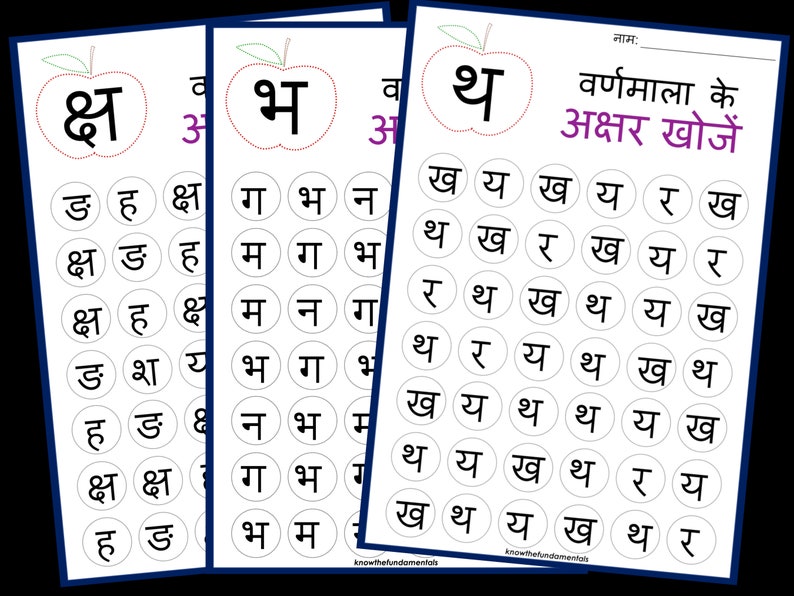 क्ष
व
अ
ङ ह क्ष
क्ष ङ ह
क्ष ह क्ष
ङ श य
ह ङ क्ष
क्ष क्ष ह
ह ङ
भ
व
अ
ग भ न
म ग भ
म न ग
भ ग भ
न भ म
ग भ ग
भ म
knowthefundamentals
नाम:
थ
वर्णमाला के
अक्षर खोजें
ख य ख य र ख
थ ख र ख य र
र थ ख थ य ख
थ र य थ ख थ
ख य थ थ य ख
थ य ख थ र य
ख थ य ख थ र
knowthefundamentals